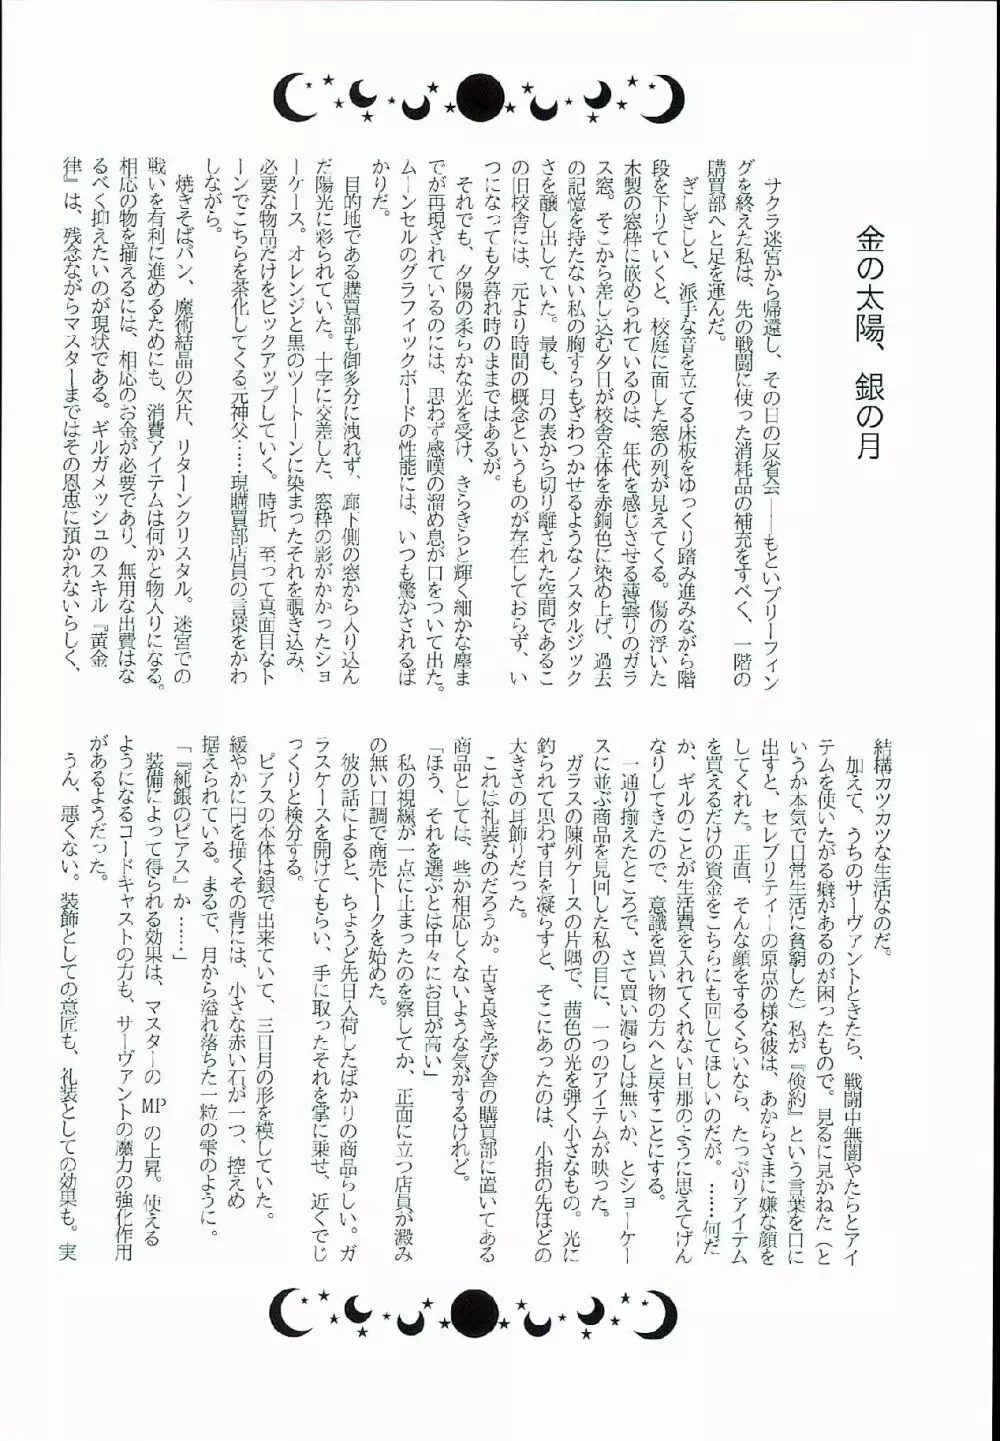 金の太陽、銀の月
　サクラ迷宮から帰還し、その日の反省会――もといブリーフィン
グを終えた私は、先の戦闘に使った消耗品の補充をすべく、一階の
購買部へと足を運んだ。
　ぎしぎしと、派手な音を立てる床板をゆっくり踏み進みながら階
段を下りていくと、校庭に面した窓の列が見えてくる。傷の浮いた
木製の窓枠に嵌められているのは、年代を感じさせる薄曇りのガラ
ス窓。そこから差し込む夕日が校舎全体を赤銅色に染め上げ、過去
の記憶を持たない私の胸すらもざわつかせるようなノスタルジック
さを醸し出していた。最も、月の表から切り離された空間であるこ
の旧校舎には、元より時間の概念というものが存在しておらず、い
つになっても夕暮れ時のままではあるが。
　それでも、夕陽の柔らかな光を受け、きらきらと輝く細かな塵ま
でが再現されているのには、思わず感嘆の溜め息が口をついて出た。
ムーンセルのグラフィックボードの性能には、いつも驚かされるば
かりだ。
　目的地である購買部も御多分に洩れず、廊下側の窓から入り込ん
だ陽光に彩られていた。十字に交差した、窓枠の影がかかったショ
ーケース。オレンジと黒のツートーンに染まったそれを覗き込み、
必要な物品だけをピックアップしていく。時折、至って真面目なト
ーンでこちらを茶化してくる元神父……現購買部店員の言葉をかわ
しながら。
　焼きそばパン、魔術結晶の欠片、リターンクリスタル。迷宮での
戦いを有利に進めるためにも、消費アイテムは何かと物入りになる。
相応の物を揃えるには、相応のお金が必要であり、無用な出費はな
るべく抑えたいのが現状である。ギルガメッシュのスキル『黄金
律』は、残念ながらマスターまではその恩恵に預かれないらしく、
結構カツカツな生活なのだ。
　加えて、うちのサーヴァントときたら、戦闘中無闇やたらとアイ
テムを使いたがる癖があるのが困ったもので。見るに見かねた（と
いうか本気で日常生活に貧窮した）私が『倹約』という言葉を口に
出すと、セレブリティーの原点の様な彼は、あからさまに嫌な顔を
してくれた。正直、そんな顔をするくらいなら、たっぷりアイテム
を買えるだけの資金をこちらにも回してほしいのだが。……何だ
か、ギルのことが生活費を入れてくれない旦那のように思えてげん
なりしてきたので、意識を買い物の方へと戻すことにする。
　一通り揃えたところで、さて買い漏らしは無いか、とショーケー
スに並ぶ商品を見回した私の目に、一つのアイテムが映った。
　ガラスの陳列ケースの片隅で、茜色の光を弾く小さなもの。光に
釣られて思わず目を凝らすと、そこにあったのは、小指の先ほどの
大きさの耳飾りだった。
　これは礼装なのだろうか。古き良き学び舎の購買部に置いてある
商品としては、些か相応しくないような気がするけれど。
「ほう、それを選ぶとは中々にお目が高い」
　私の視線が一点に止まったのを察してか、正面に立つ店員が澱み
の無い口調で商売トークを始めた。
　彼の話によると、ちょうど先日入荷したばかりの商品らしい。ガ
ラスケースを開けてもらい、手に取ったそれを掌に乗せ、近くでじ
っくりと検分する。
　ピアスの本体は銀で出来ていて、三日月の形を模していた。
緩やかに円を描くその背には、小さな赤い石が一つ、控えめに
据えられている。まるで、月から溢れ落ちた一粒の雫のように。
「『純銀のピアス』か……」
　装備によって得られる効果は、マスターの MP の上昇。使える
ようになるコードキャストの方も、サーヴァントの魔力の強化作用
があるようだった。
　うん、悪くない。装飾としての意匠も、礼装としての効果も。実